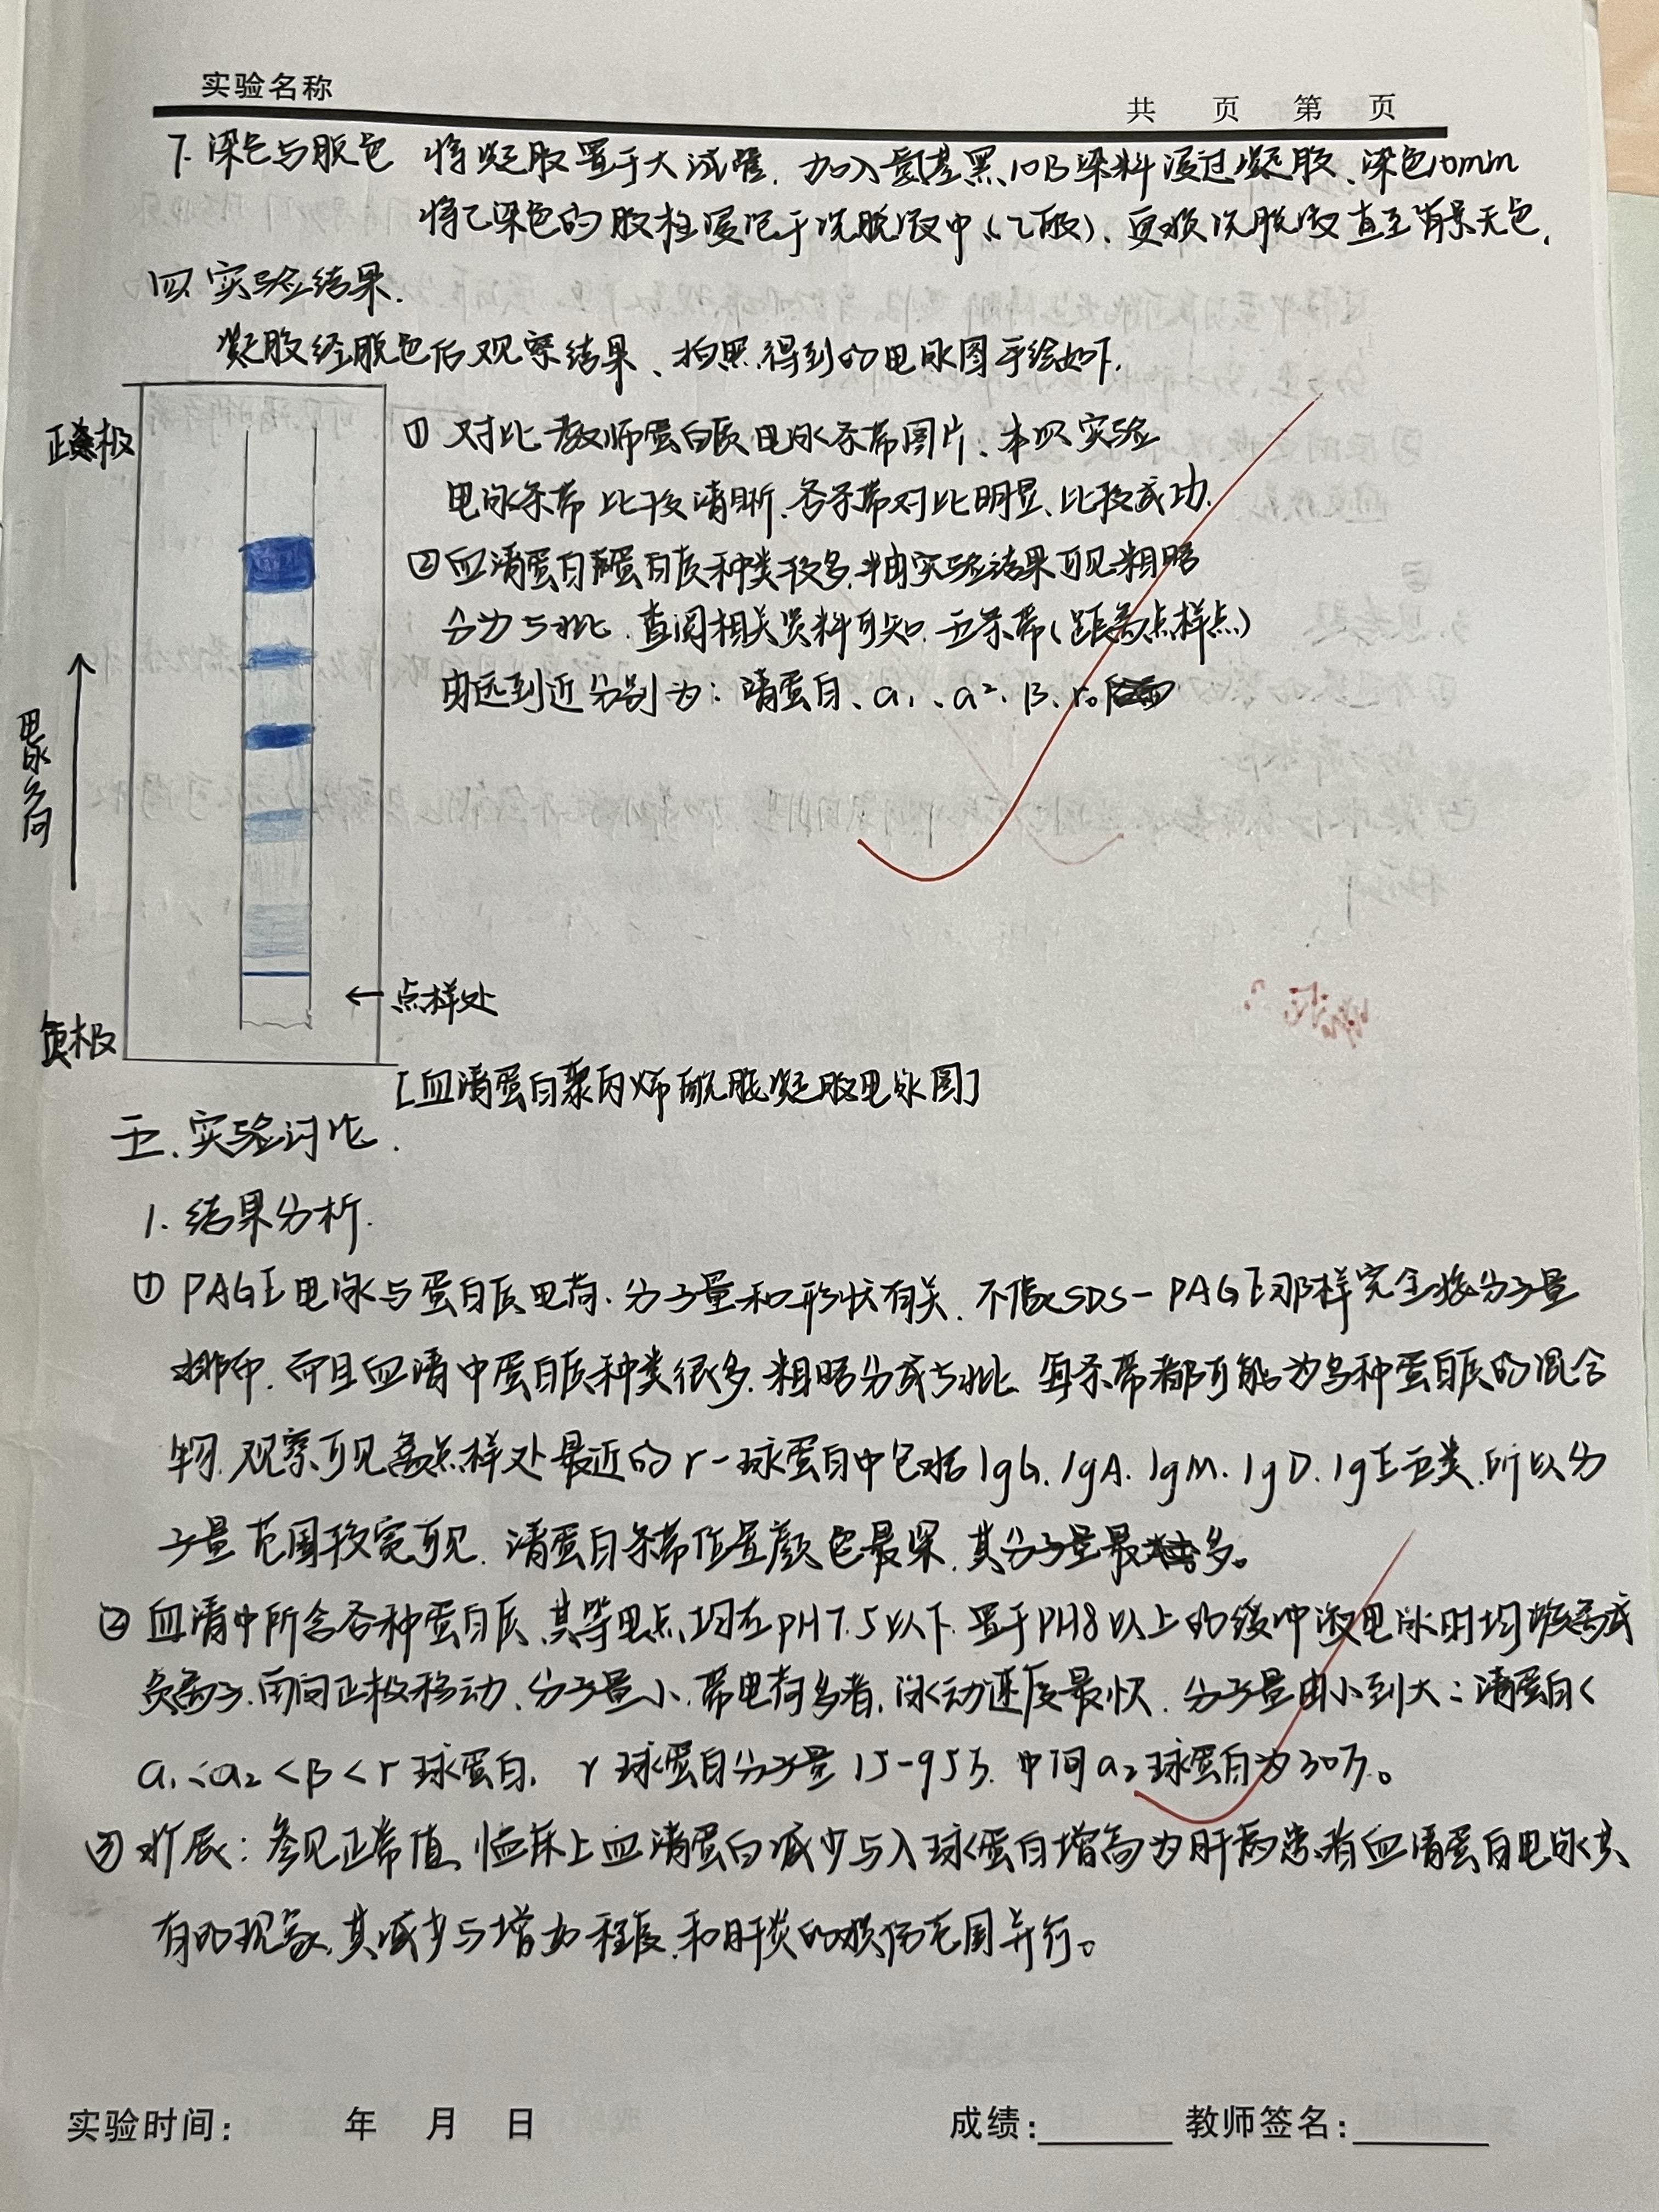 实验名称
共 页 第 页
7. 染色与脱色 将凝胶置于大试管，加入氨基黑10B染料浸过凝胶、染色10min
将已染色的胶柱浸泡于洗脱液中（乙酸）、更换洗脱液直至背景无色.
四.实验结果.
凝胶经脱色后观察结果、拍照.得到的电泳图手绘如下.
正极
①对比教师蛋白质电泳条带图片、本次实验
电泳条带比较清晰.各条带对比明显、比较成功.
②血清蛋白蛋白质种类较多.由实验结果可见粗略
分为5批.查阅相关资料可知.五条带（距离点样点）
由远到近分别为：清蛋白、a₁、a²、β、r。
电泳方向
点样处
负极
[血清蛋白聚丙烯酰胺凝胶电泳图]
五.实验讨论.
1.结果分析.
①PAGE电泳与蛋白质电荷.分子量和形状有关.不像SDS-PAGE那样完全按分子量
排序.而且血清中蛋白质种类很多.粗略分成5批.每条带都可能为多种蛋白质的混合
物.观察可见离点样处最近的r-球蛋白中包括IgG.IgA.IgM.IgD.IgE五类.所以分
子量范围较宽可见.清蛋白条带位置颜色最深.其分子量最多。
②血清中所含各种蛋白质.其等电点均在pH7.5以下.置于PH8以上的缓冲液电泳时均解离成
负离子.而向正极移动、分子量小.带电荷多者，泳动速度最快.分子量由小到大：清蛋白<
a₁、a₂<β<r球蛋白. r球蛋白分子量15-95万.中间a₂球蛋白为30万。
③扩展：参见正常值.临床上血清蛋白减少与入球蛋白增高为肝病患者血清蛋白电泳共
有的现象.其减少与增加程度.和肝炎的损伤范围并行。
实验时间： 年 月 日
成绩： 教师签名：